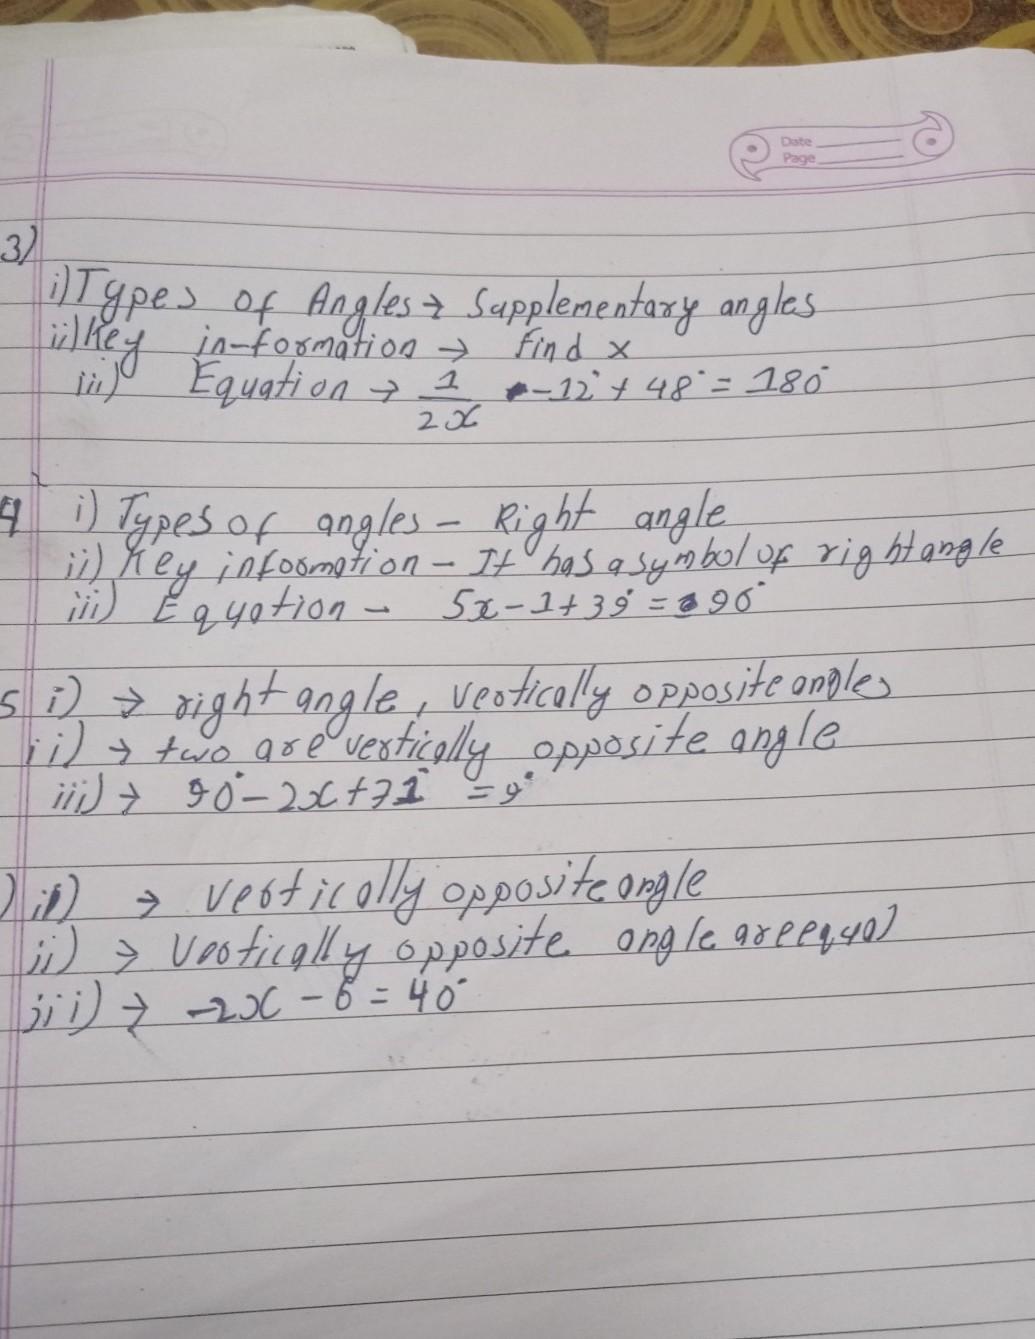 Date
Page
3)
i) Types of Angles → Supplementary angles
ii) Key in-formation → find x
iii) Equation → 1/2x -12° + 48° = 180°
4 i) Types of angles - Right angle
ii) Key information - It has a symbol of right angle
iii) Equation - 5x-1+39° = 90°
5 i) → right angle, vertically opposite angles
ii) → two are vertically opposite angle
iii) → 90°-2x+71° = 9°
) i) → vertically opposite angle
ii) → Vertically opposite angle are equal
iii) → -2x-6 = 40°